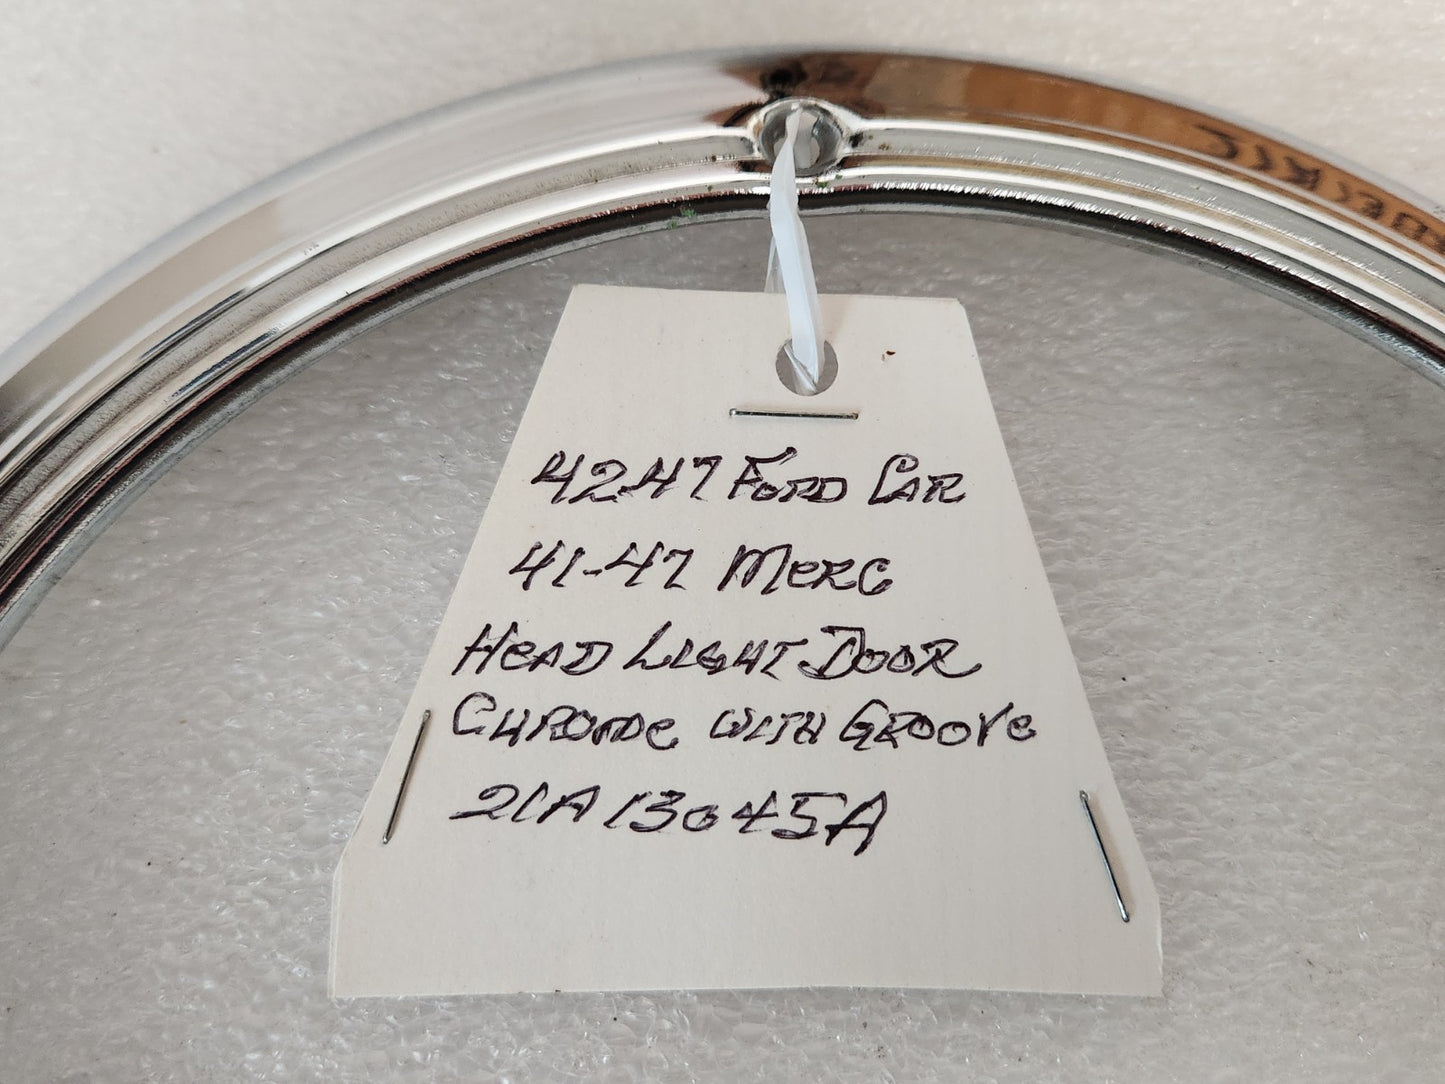 42-47 FORD CAR
41-47 MERC
HEAD LIGHT DOOR
CHROME WITH GROOVE
21A13045A